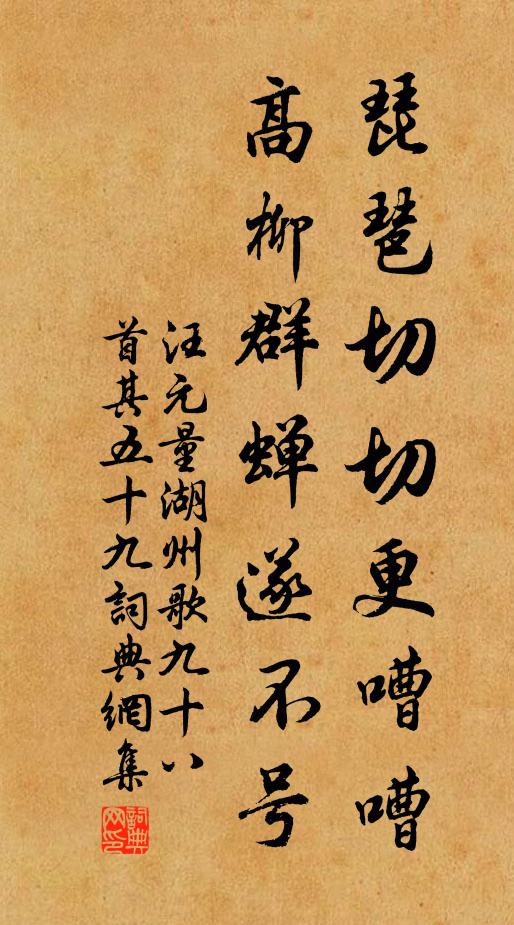 琵琶切切更嘈嘈
高柳群蝉遂不号
汪元量湖州歌九十八
首其五十九詞典網集
詞典网印